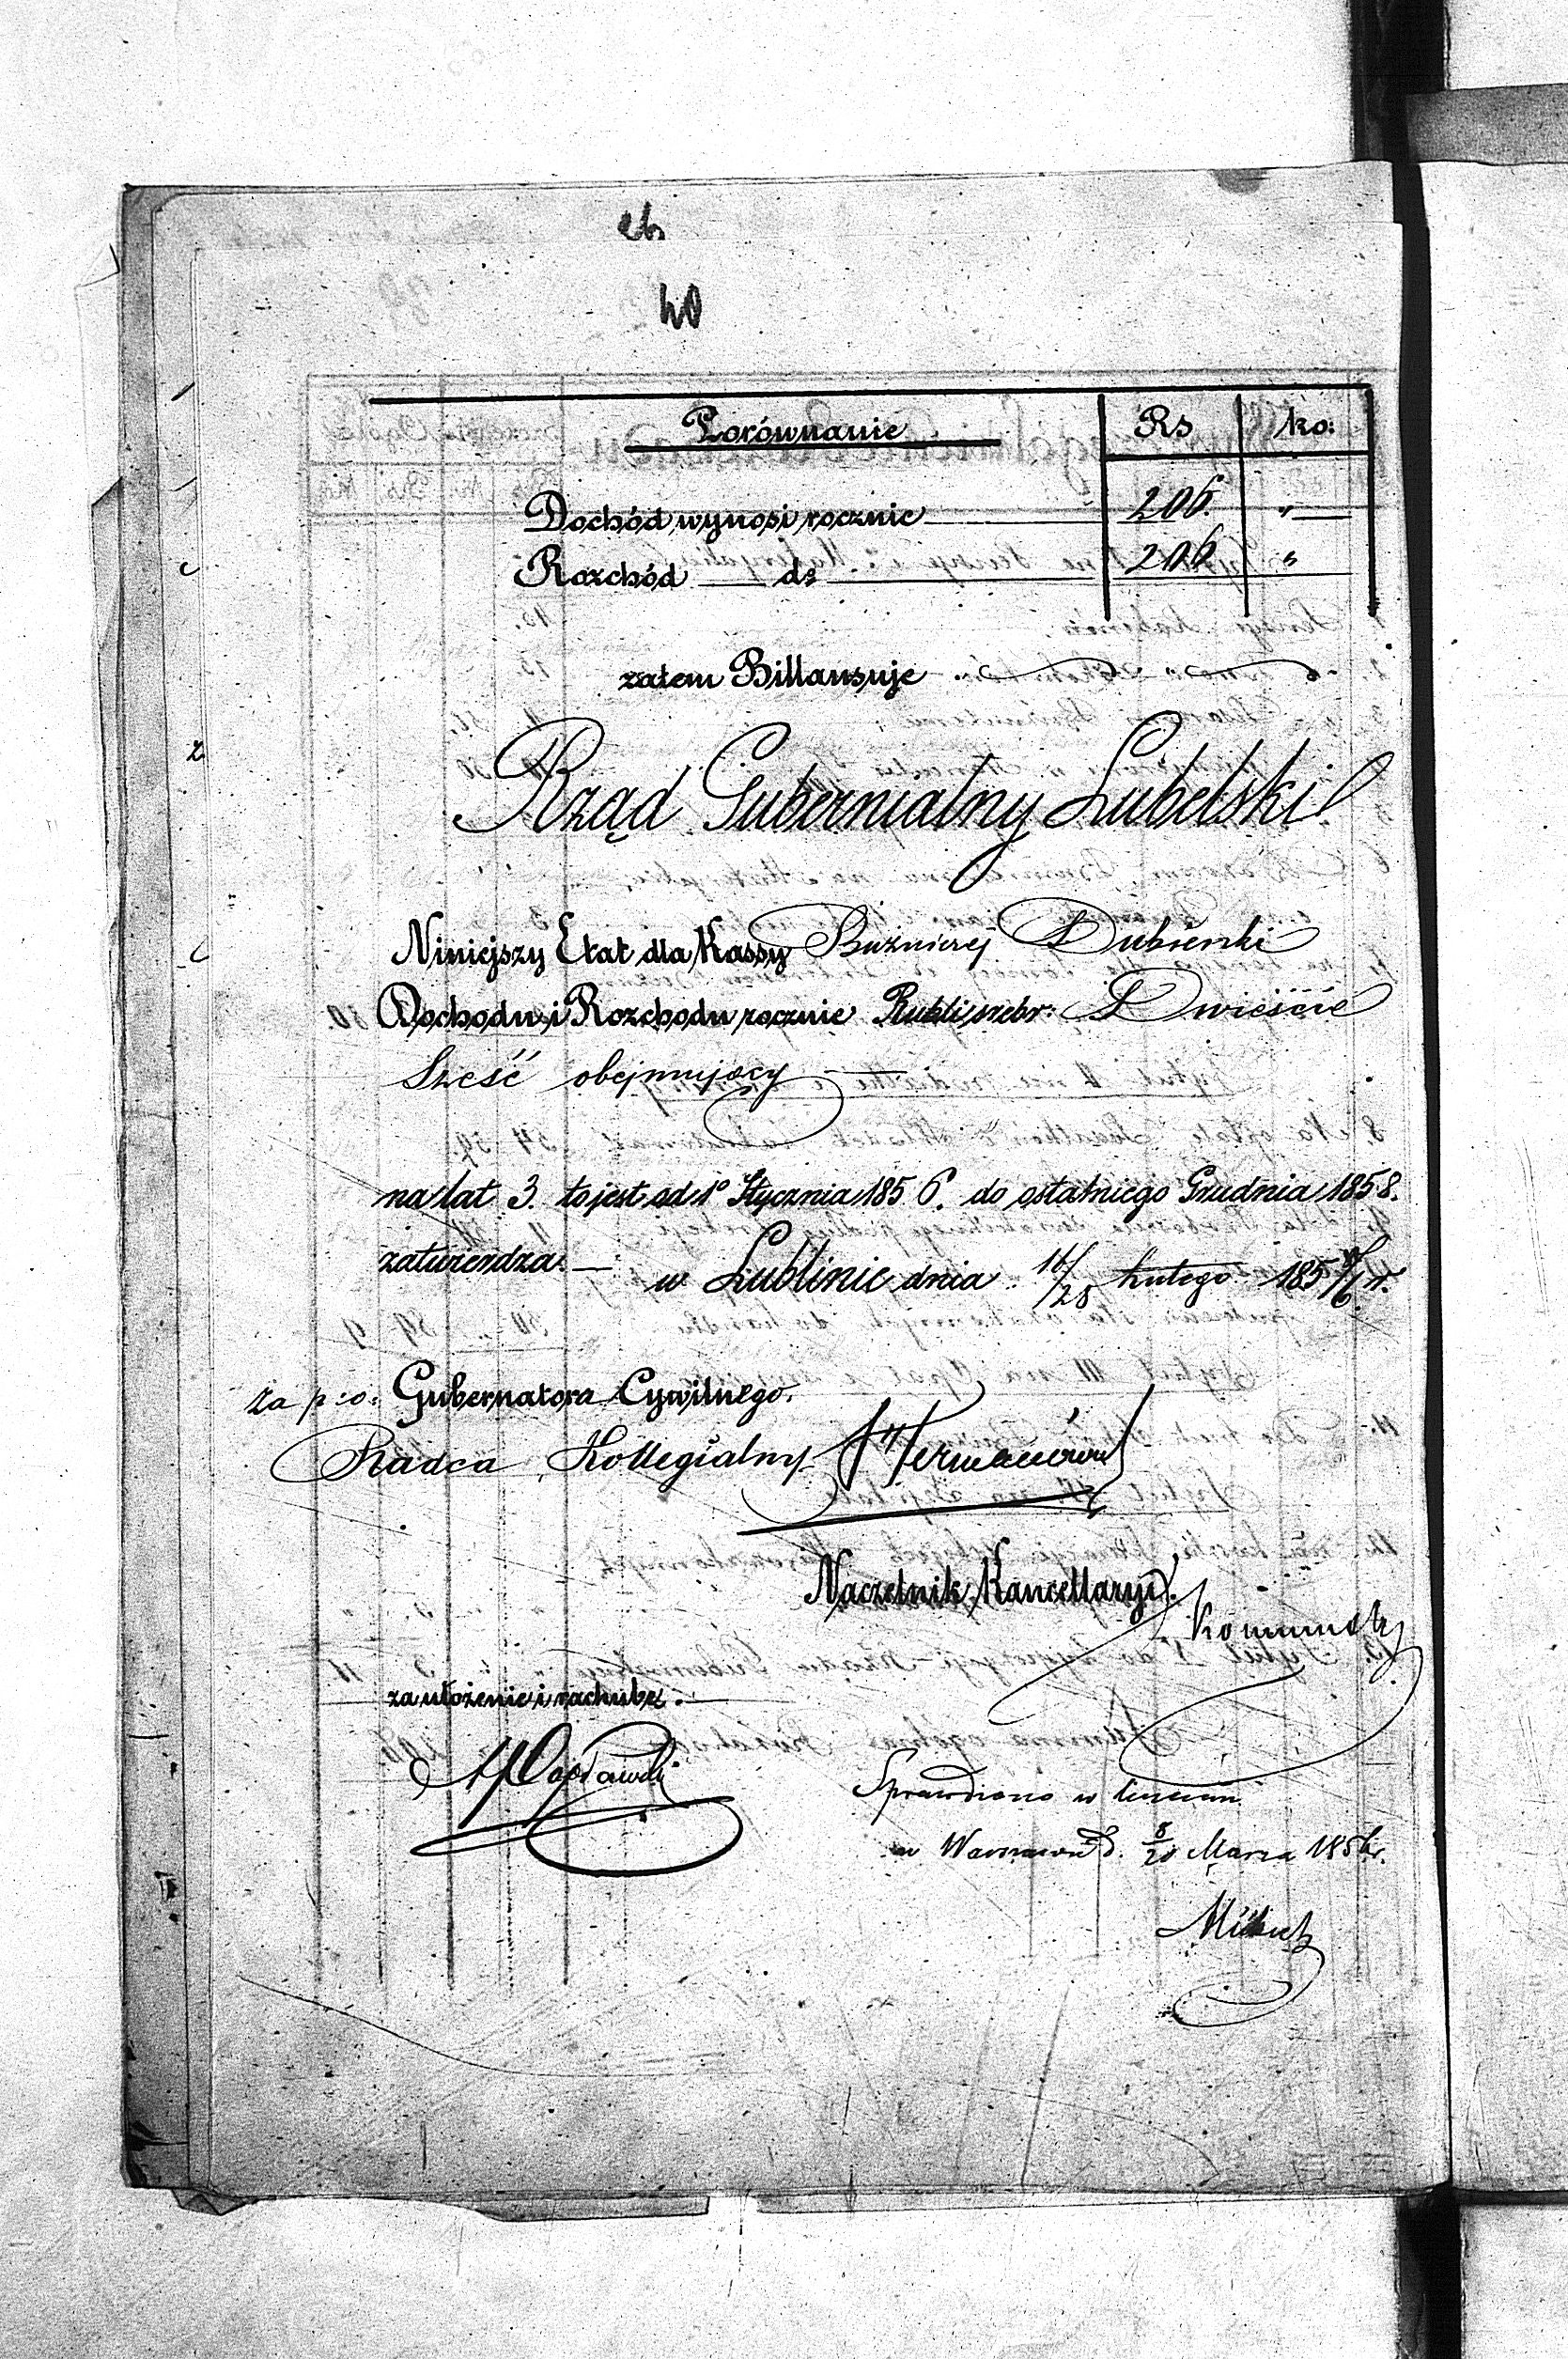 40
Porównanie Rs ko:
Dochód wynosi rocznie 206. "
Rozchód do 206 "
zatem Billansuje
Rząd Gubernialny Lubelski
Niniejszy Etat dla Kassy Bużniczej Dubienki
Dochodu i Rozchodu rocznie Rubli srebr: Dwieście
Sześć obejmujący
na lat 3. to jest od 1o Stycznia 1856. do ostatniego Grudnia 1858.
zatwierdza. — w Lublinie dnia 16/28 Lutego 1856 r.
za p:o: Gubernatora Cywilnego.
Radca Kollegialny
Naczelnik Kancellaryi.
za ułożenie i rachubę.
Sprawdzono w
w Warszawie d. 8/20 Marca 1856 r.